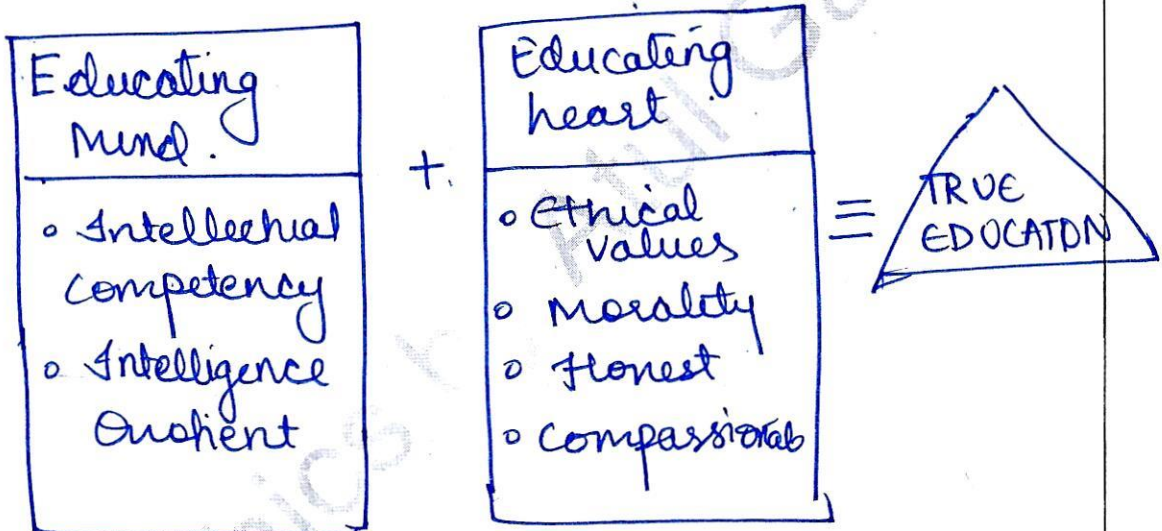 Educating
Mind.
• Intellectual
competency
• Intelligence
Quotient
+
Educating
heart
• Ethical
values
• Morality
• Honest
• Compassionate
=
TRUE
EDUCATON